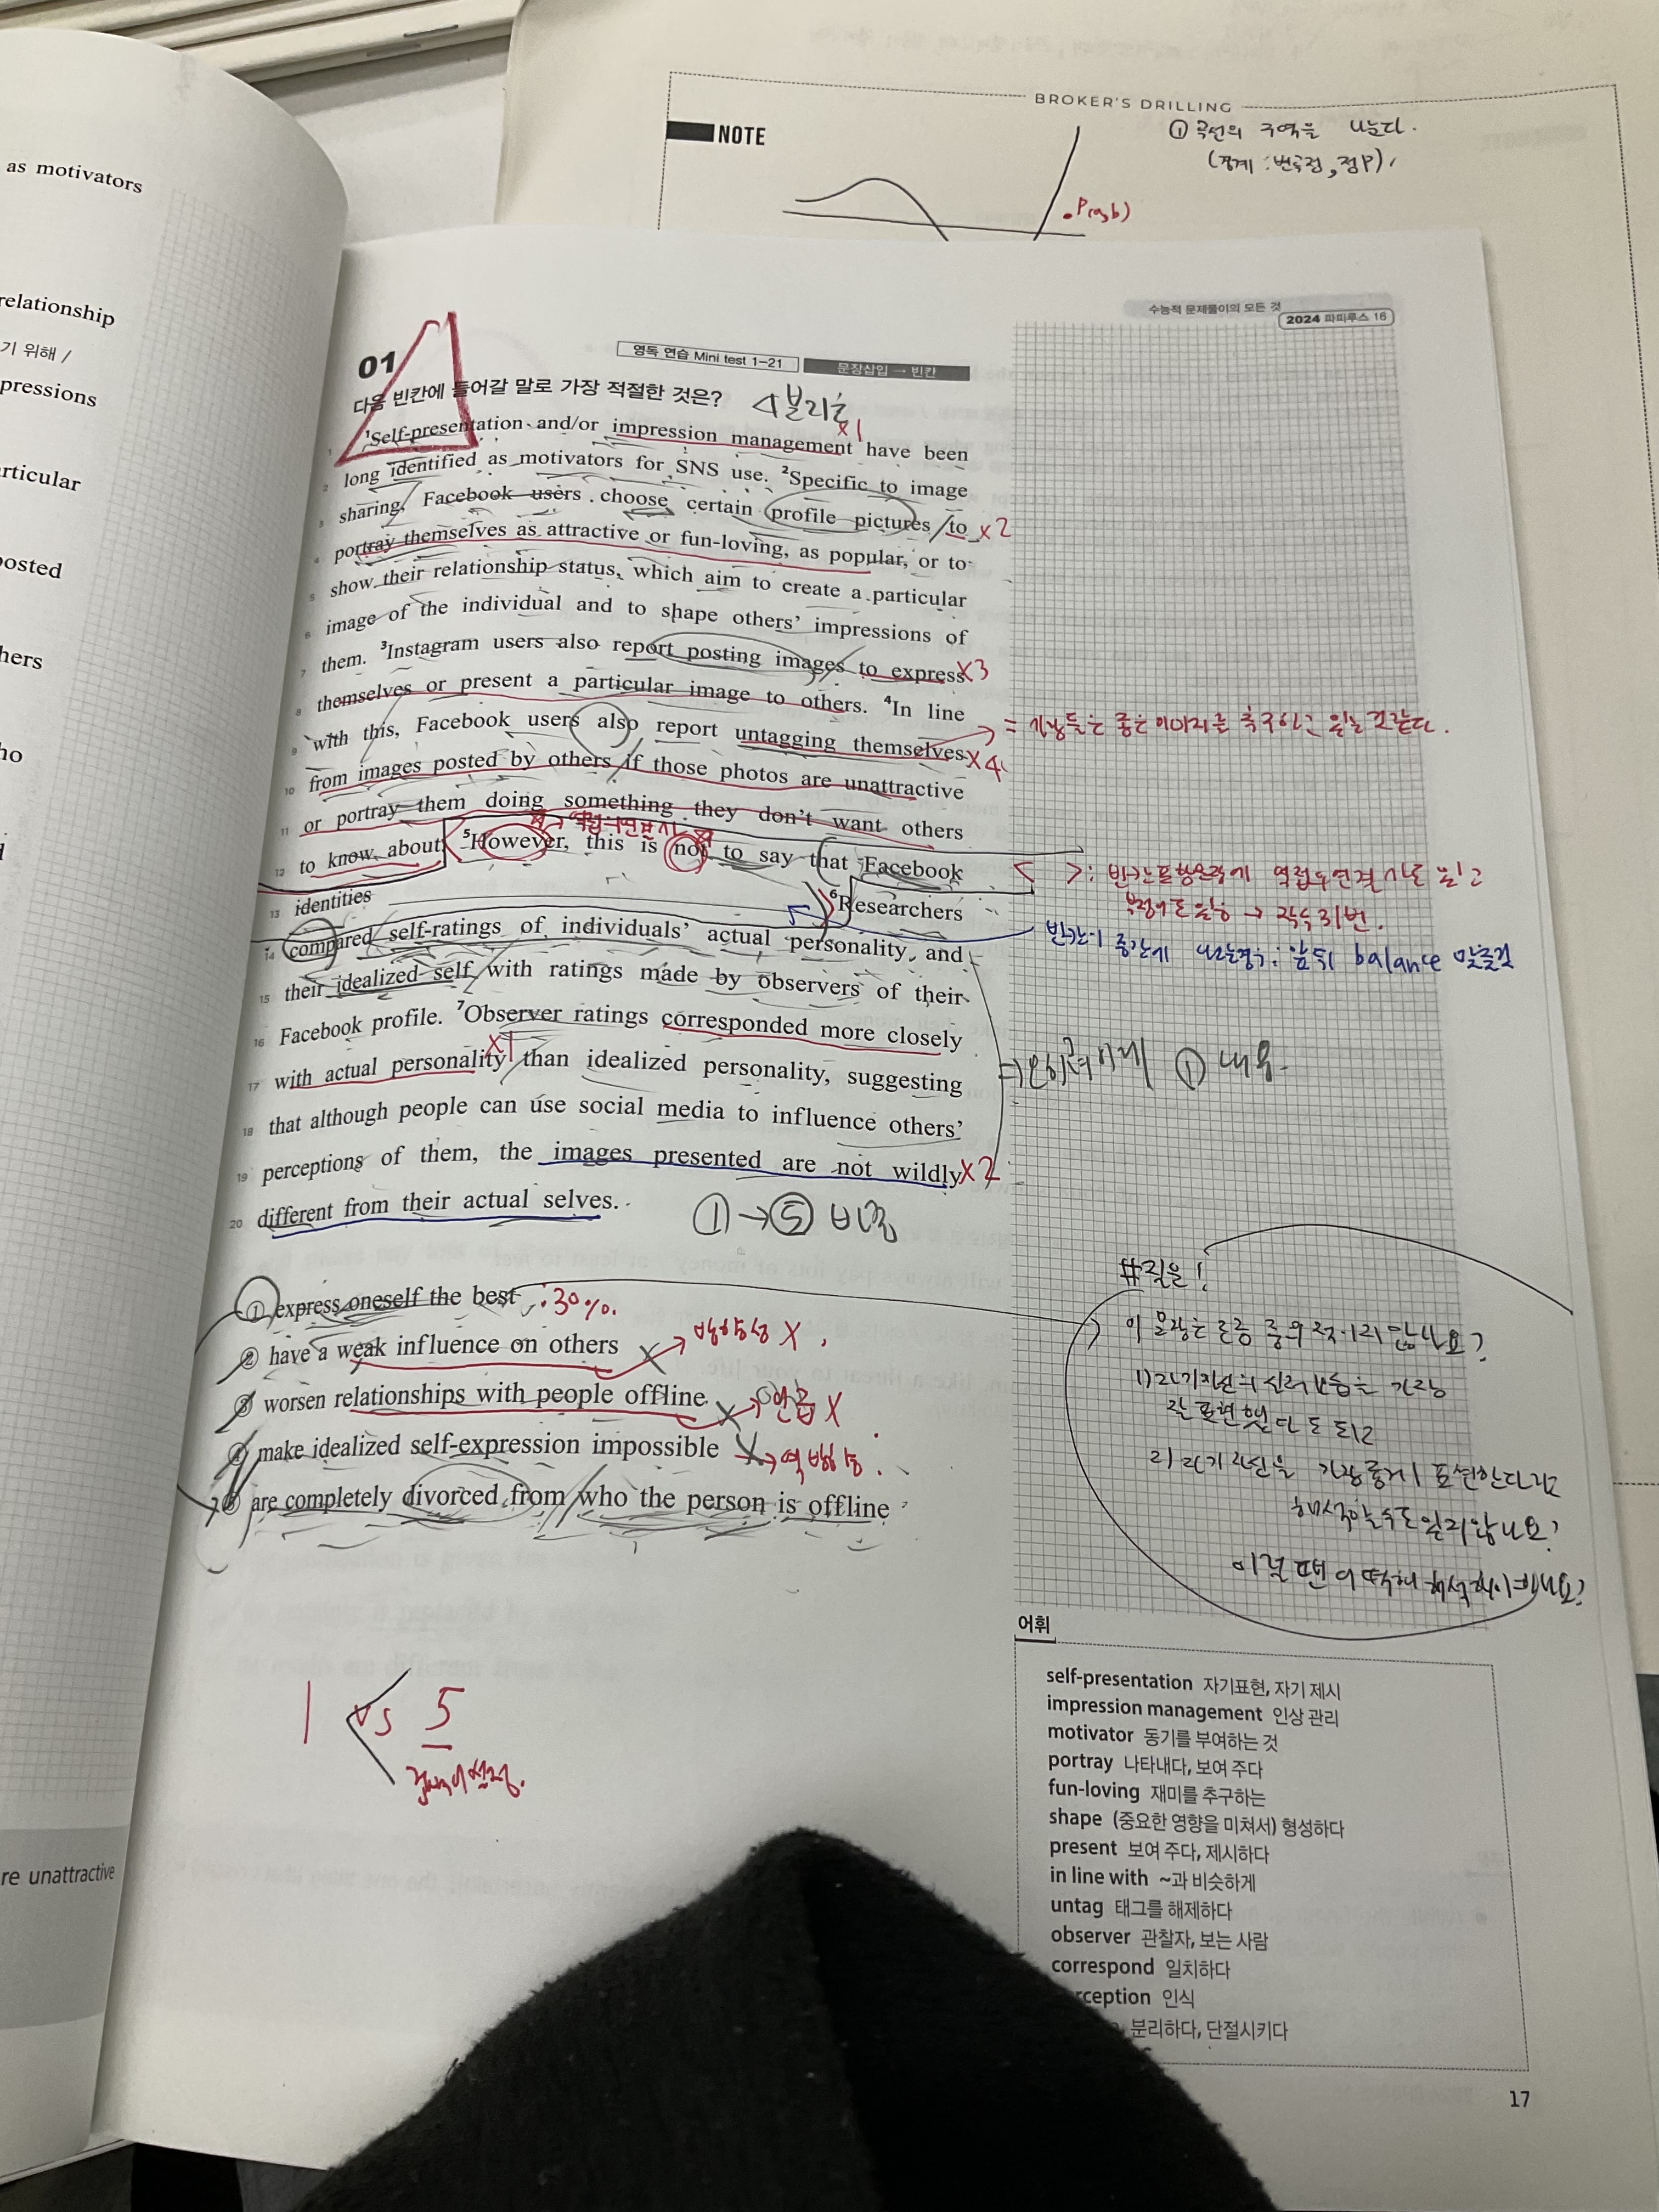 as motivators
relationship
기 위해 /
pressions
rticular
posted
hers
ho
re unattractive
BROKER'S DRILLING
NOTE
① 곡선의 구역을 나눈다.
(경계 : 변곡점, 점P)
P(a,b)
수능적 문제풀이의 모든 것
2024 파피루스 16
01
영독 연습 Mini test 1-21
문장삽입 → 빈칸
다음 빈칸에 들어갈 말로 가장 적절한 것은?
x1
1 ¹Self-presentation and/or impression management have been
2 long identified as motivators for SNS use. ²Specific to image
3 sharing, Facebook users choose certain profile pictures to x2
4 portray themselves as attractive or fun-loving, as popular, or to
5 show their relationship status, which aim to create a particular
6 image of the individual and to shape others' impressions of
7 them. ³Instagram users also report posting images to express x3
8 themselves or present a particular image to others. ⁴In line
9 with this, Facebook users also report untagging themselves x4
= 사람들은 좋은 이미지를 추구하고 있는 것 같다.
10 from images posted by others if those photos are unattractive
11 or portray them doing something they don't want others
12 to know about. ⁵However, this is not to say that Facebook
13 identities ⁶Researchers
14 compared self-ratings of individuals' actual personality and
빈칸이 중간에 나온경우 : 앞뒤 balance 맞출것
15 their idealized self with ratings made by observers of their
16 Facebook profile. ⁷Observer ratings corresponded more closely
x1
17 with actual personality than idealized personality, suggesting
① 내용
18 that although people can use social media to influence others'
19 perceptions of them, the images presented are not wildly x2
20 different from their actual selves.
① → ⑤ 비중
① express oneself the best : 30%.
② have a weak influence on others X → 방향성 X
③ worsen relationships with people offline X → 언급 X
④ make idealized self-expression impossible X → 역방향
⑤ are completely divorced from who the person is offline
#질문!
이 문장은 존중 중의적이지 않나요?
1) 자기자신의 실제 모습을 가장
잘 표현했다도 되고
2) 자기 자신을 가장 좋게 표현한다라고
해석할 수도 있지 않나요?
이럴 땐 어떡해 해석해야 하나요?
1 vs 5
어휘
self-presentation 자기표현, 자기 제시
impression management 인상 관리
motivator 동기를 부여하는 것
portray 나타내다, 보여 주다
fun-loving 재미를 추구하는
shape (중요한 영향을 미쳐서) 형성하다
present 보여 주다, 제시하다
in line with ~과 비슷하게
untag 태그를 해제하다
observer 관찰자, 보는 사람
correspond 일치하다
rception 인식
분리하다, 단절시키다
17